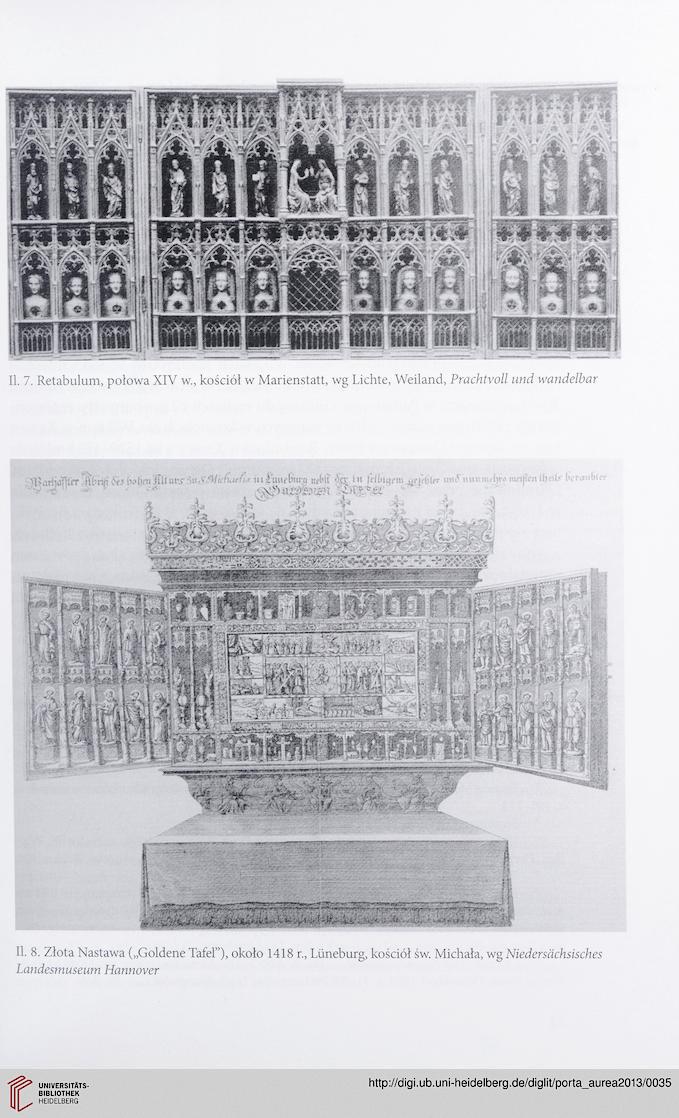 Il. 7. Retabulum, połowa XIV w., kościół w Marienstatt, wg Lichte, Weiland, Prachtvoll und wandelbar
Warhaffter Abriß des hohen Altars zu S. Michaelis in Luneburg nebst der in selbigem und nunmehro meisten theils beraubter
GÜLDENEN TAFEL
Il. 8. Złota Nastawa („Goldene Tafel”), około 1418 r., Lüneburg, kościół św. Michała, wg Niedersächsisches
Landesmuseum Hannover
UNIVERSITÄTS-
BIBLIOTHEK
HEIDELBERG
http://digi.ub.uni-heidelberg.de/diglit/porta_aurea2013/0035